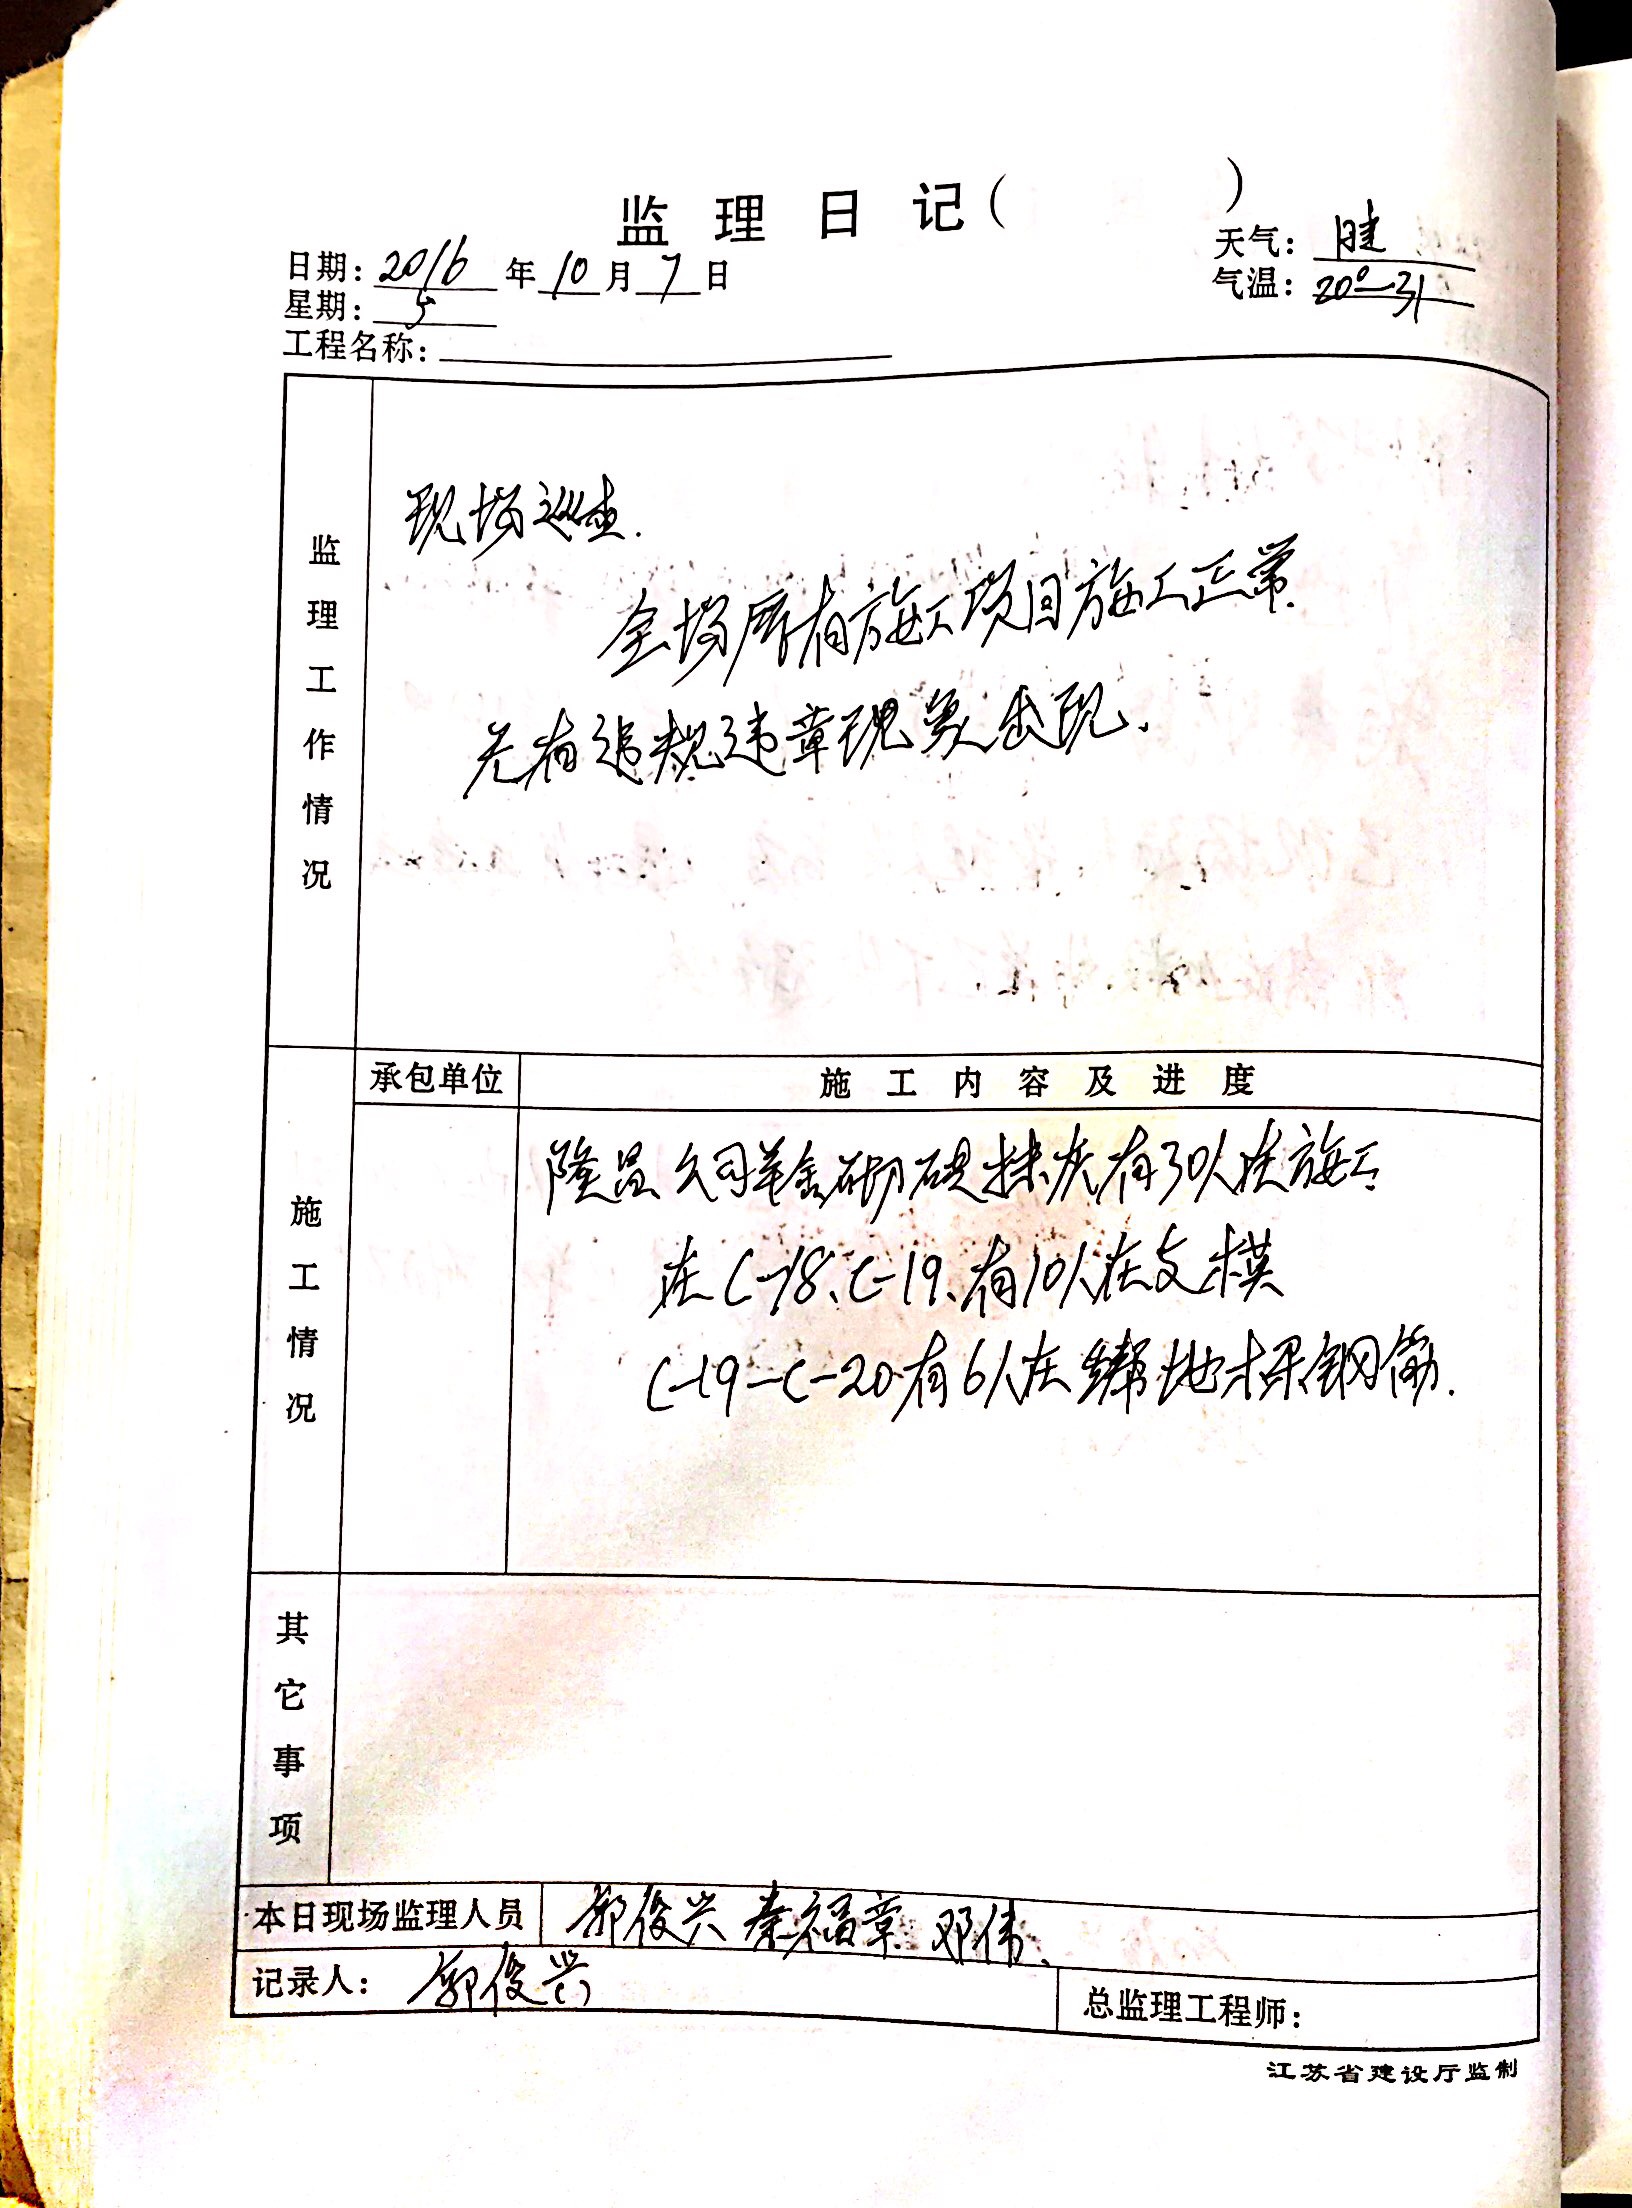 监理日记（ ）
日期：2016年10月7日
天气：晴
星期：5
气温：20°—31
工程名称：
监理工作情况
现场巡查.
全场所有施工项目施工正常.
无有违规违章现象出现.
施工情况
承包单位
施工内容及进度
隆昌公司 砌砖抹灰有30人在施工
在C-18、C-19、有10人在支模
C-19—C-20有6人在绑地梁钢筋.
其它事项
本日现场监理人员
郭俊兴 秦福章 邓伟.
记录人：郭俊兴
总监理工程师：
江苏省建设厅监制